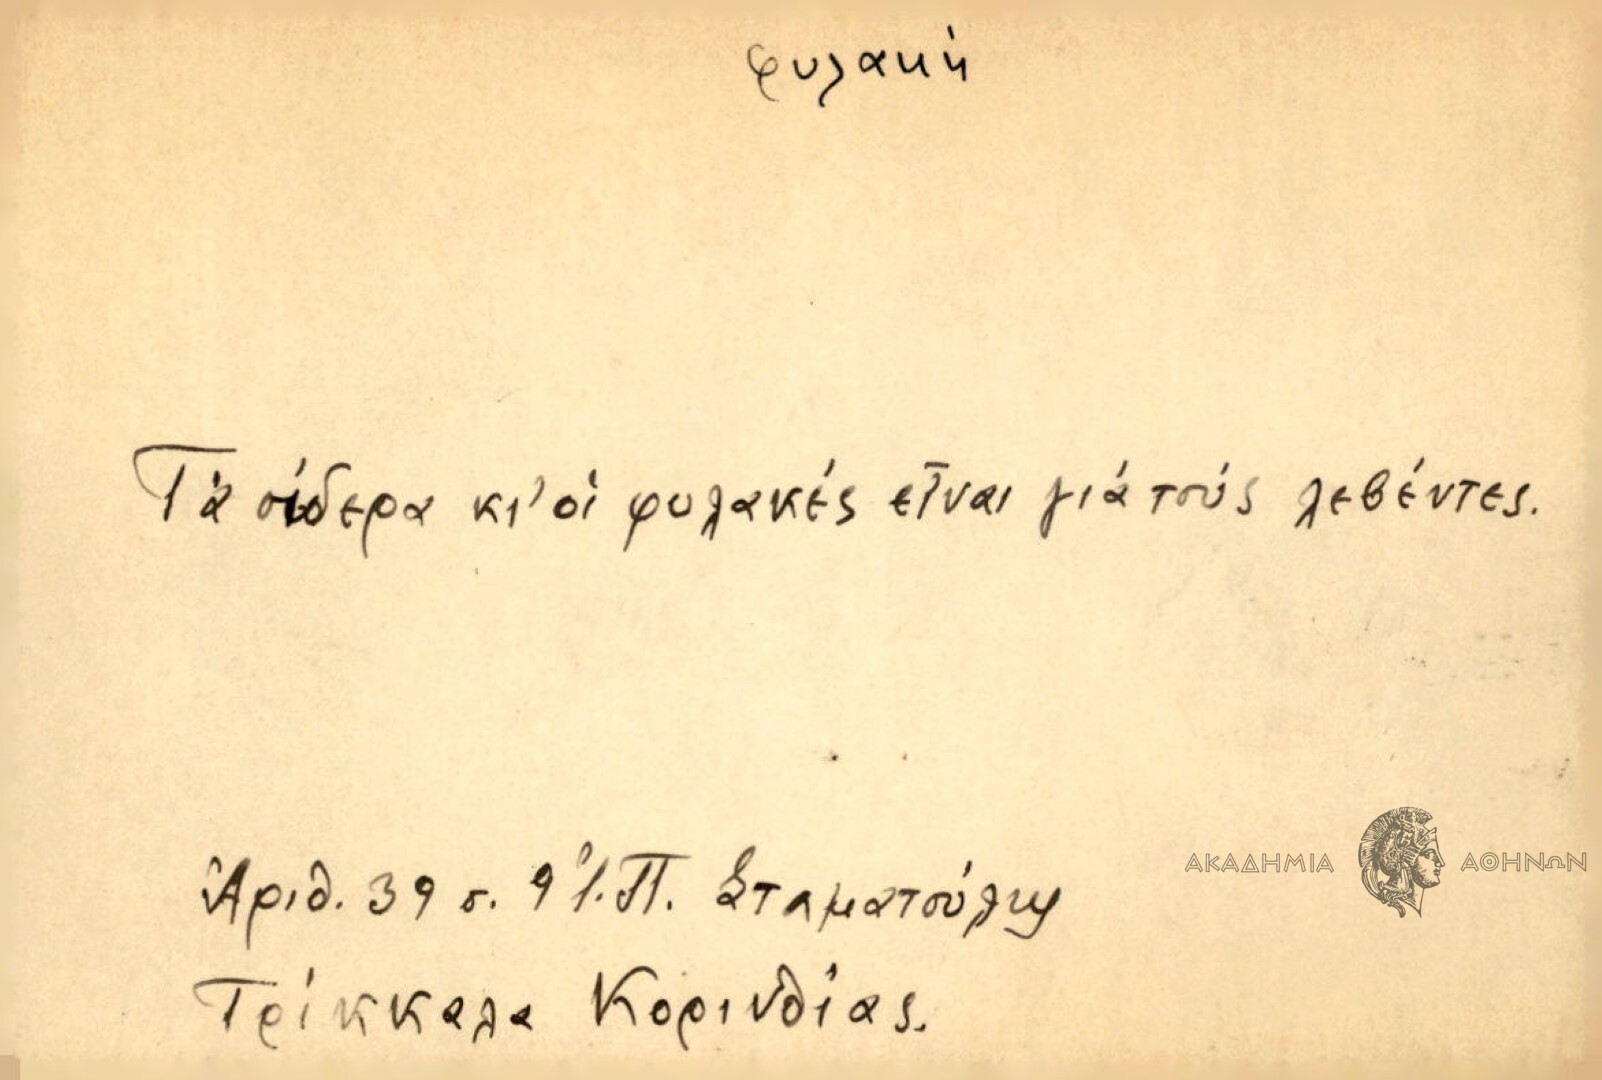 φυλακή
Τὰ σίδερα κι' οἱ φυλακές εἶναι γιά τούς λεβέντες.
Ἀριθ. 39 σ. 9 Ἰ. Π. Σταματούλης
Τρίκκαλα Κορινθίας.
ΑΚΑΔΗΜΙΑ ΑΘΗΝΩΝ